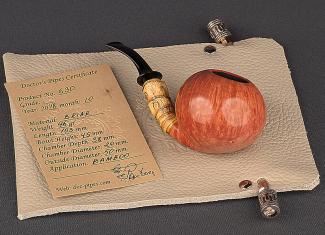 Doctor's Pipes Certificate
Product No: 630
Grade:
Year: 2018 month: 10
Material: BRIAR
Weight: 46 gr
Length: 103 mm
Bowl Height: 45 mm
Chamber Depth: 38 mm
Chamber Diameter: 20 mm
Outside Diameter: 50 mm
Application: BAMBOO
Web: doc-pipes.com